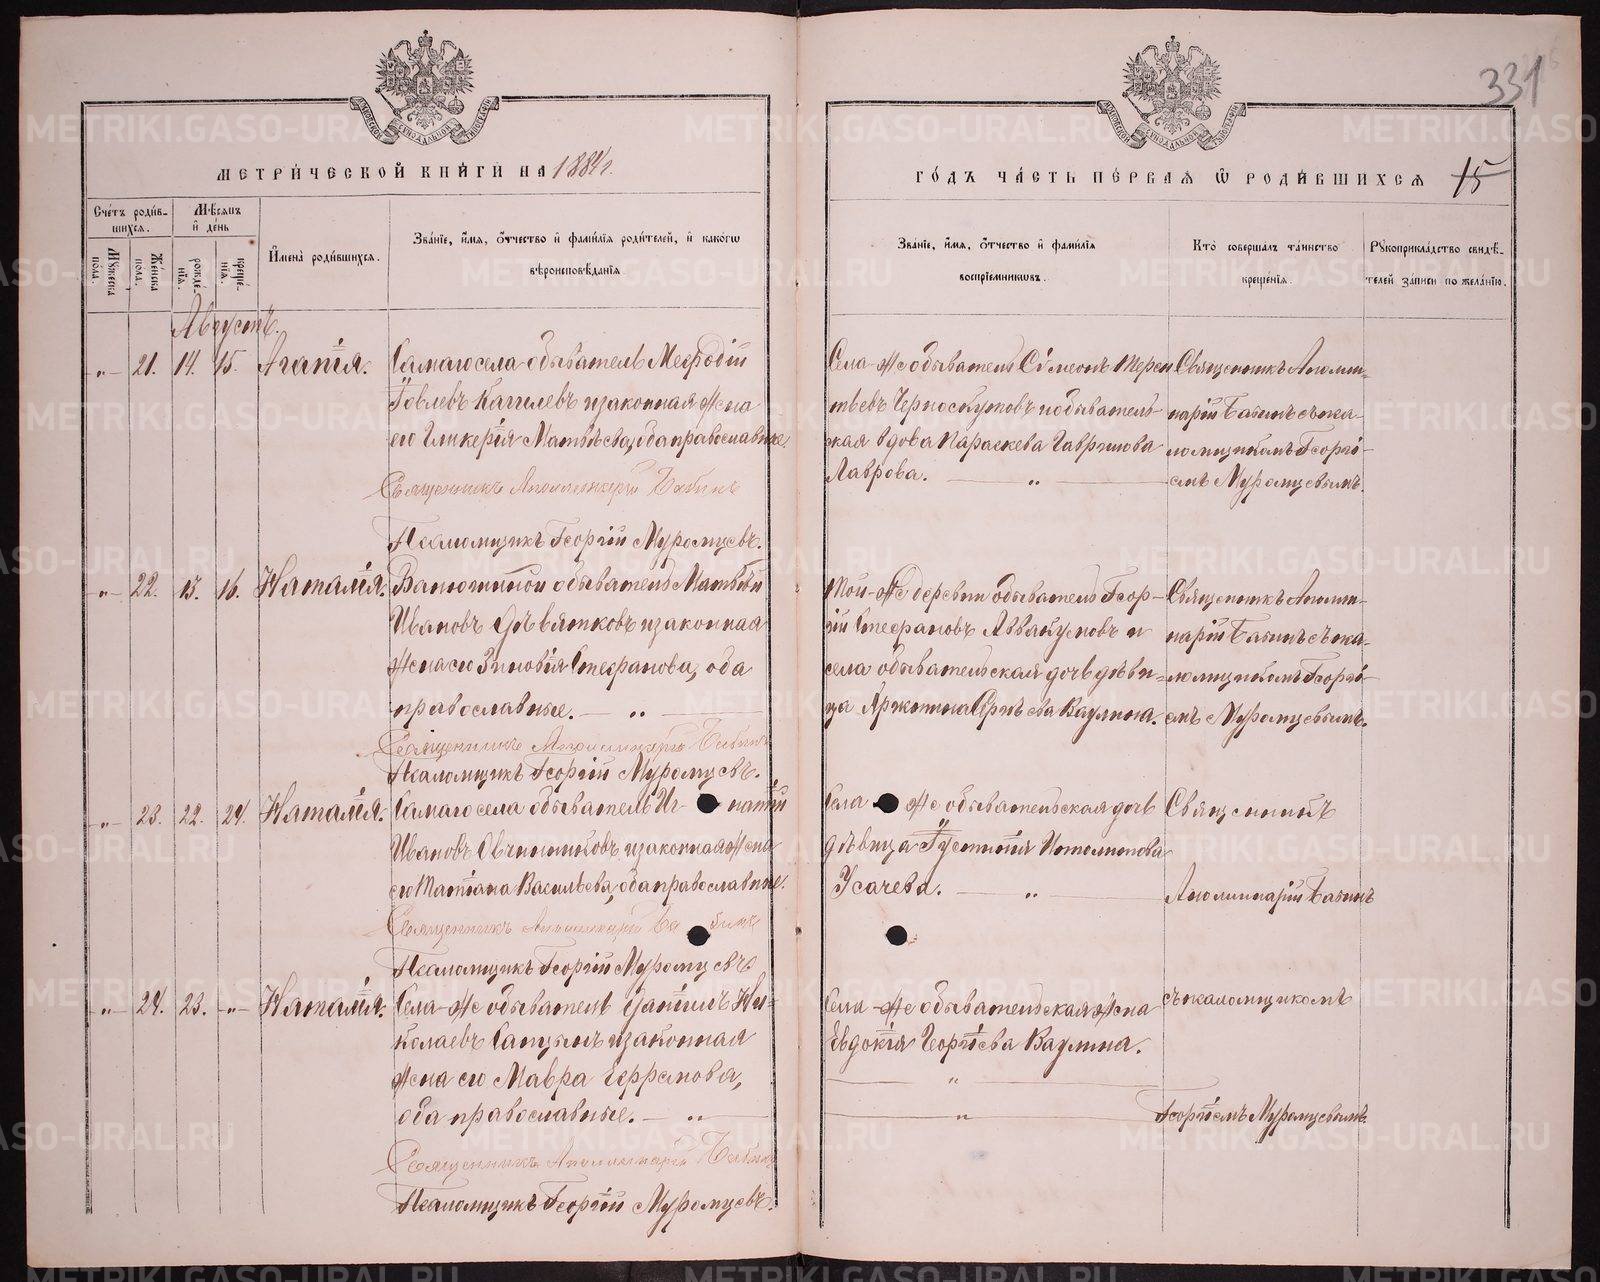 331
МЕТРИ́ЧЕСКОЙ КНИ́ГИ НА 1884 г.
ГО́ДЪ ЧА́СТЬ ПЕ́РВАѦ Ѡ РОДИ́ВШИХСѦ 15
Сче́тъ роди́в-
шихсѧ.
Мѣ́сѧцъ
и҆ де́нь
Мꙋ́жеска по́ла.
Же́нска по́ла.
рожде́-нїѧ.
креще́-нїѧ.
И҆мена̀ роди́вшихсѧ.
Зва́нїе, и҆́мѧ, ѻ҆́тчество и҆ фами́лїѧ роди́телей, и҆ како́гѡ
вѣроисповѣ́данїѧ
Зва́нїе, и҆́мѧ, ѻ҆́тчество и҆ фами́лїѧ
воспрїе́мникѡвъ.
Кто̀ соверша́лъ та́инство
креще́нїѧ.
Рꙋкоприкла́дство свидѣ́-
телей за́писи по жела́нїю.
Августъ.
„ 21. 14. 15. Агапія.
Самаго села обыватель Меѳодій
Іовлевъ Катаевъ и законная жена
его Гликерія Матвѣева, оба православные
Священникъ Аполлинарій Бабинъ
Псаломщикъ Георгій Муромцевъ.
Села-же обыватель Сѵмеонъ Терен
тьевъ Черноскутовъ и обыватель-
ская вдова Параскева Гаврилова
Лаврова. „
Священникъ Аполли-
нарій Бабинъ съ пса-
ломщикомъ Георгі-
емъ Муромцевымъ.
„ 22. 15. 16. Наталія.
обыватель Матвѣй
Ивановъ Девятковъ и законная
жена его Зиновія Стефанова, оба
православные. „
Священникъ Аполлинарій Бабинъ
Псаломщикъ Георгій Муромцевъ.
Той-же деревни обыватель Геор-
гій Стефановъ Аввакумовъ и
села обывательская дочь дѣви-
ца Ваулина.
Священникъ Аполли-
нарій Бабинъ съ пса-
ломщикомъ Георгі-
емъ Муромцевымъ.
„ 23. 22. 24. Наталія.
Самаго села обыватель Иг- натій
Ивановъ Овчинниковъ и законная жена
его Татіана Васильева, оба православные.
Священникъ Аполлинарій Ба бинъ
Псаломщикъ Георгій Муромцевъ
Села же обывательская дочь
дѣвица Іустинія
Усачева. „
Священникъ
Аполлинарій Бабинъ
„ 24. 23. „ Наталія.
Села-же обыватель Даніилъ Ни-
колаевъ и законная
жена его Мавра Ефремова,
оба православные. „
Священникъ Аполлинарій Бабинъ
Псаломщикъ Георгій Муромцевъ.
Села-же обывательская жена
Евдокія Георгіева Ваулина.
„
„
съ псаломщикомъ
Георгіемъ Муромцевымъ.
METRIKI.GASO-URAL.RU